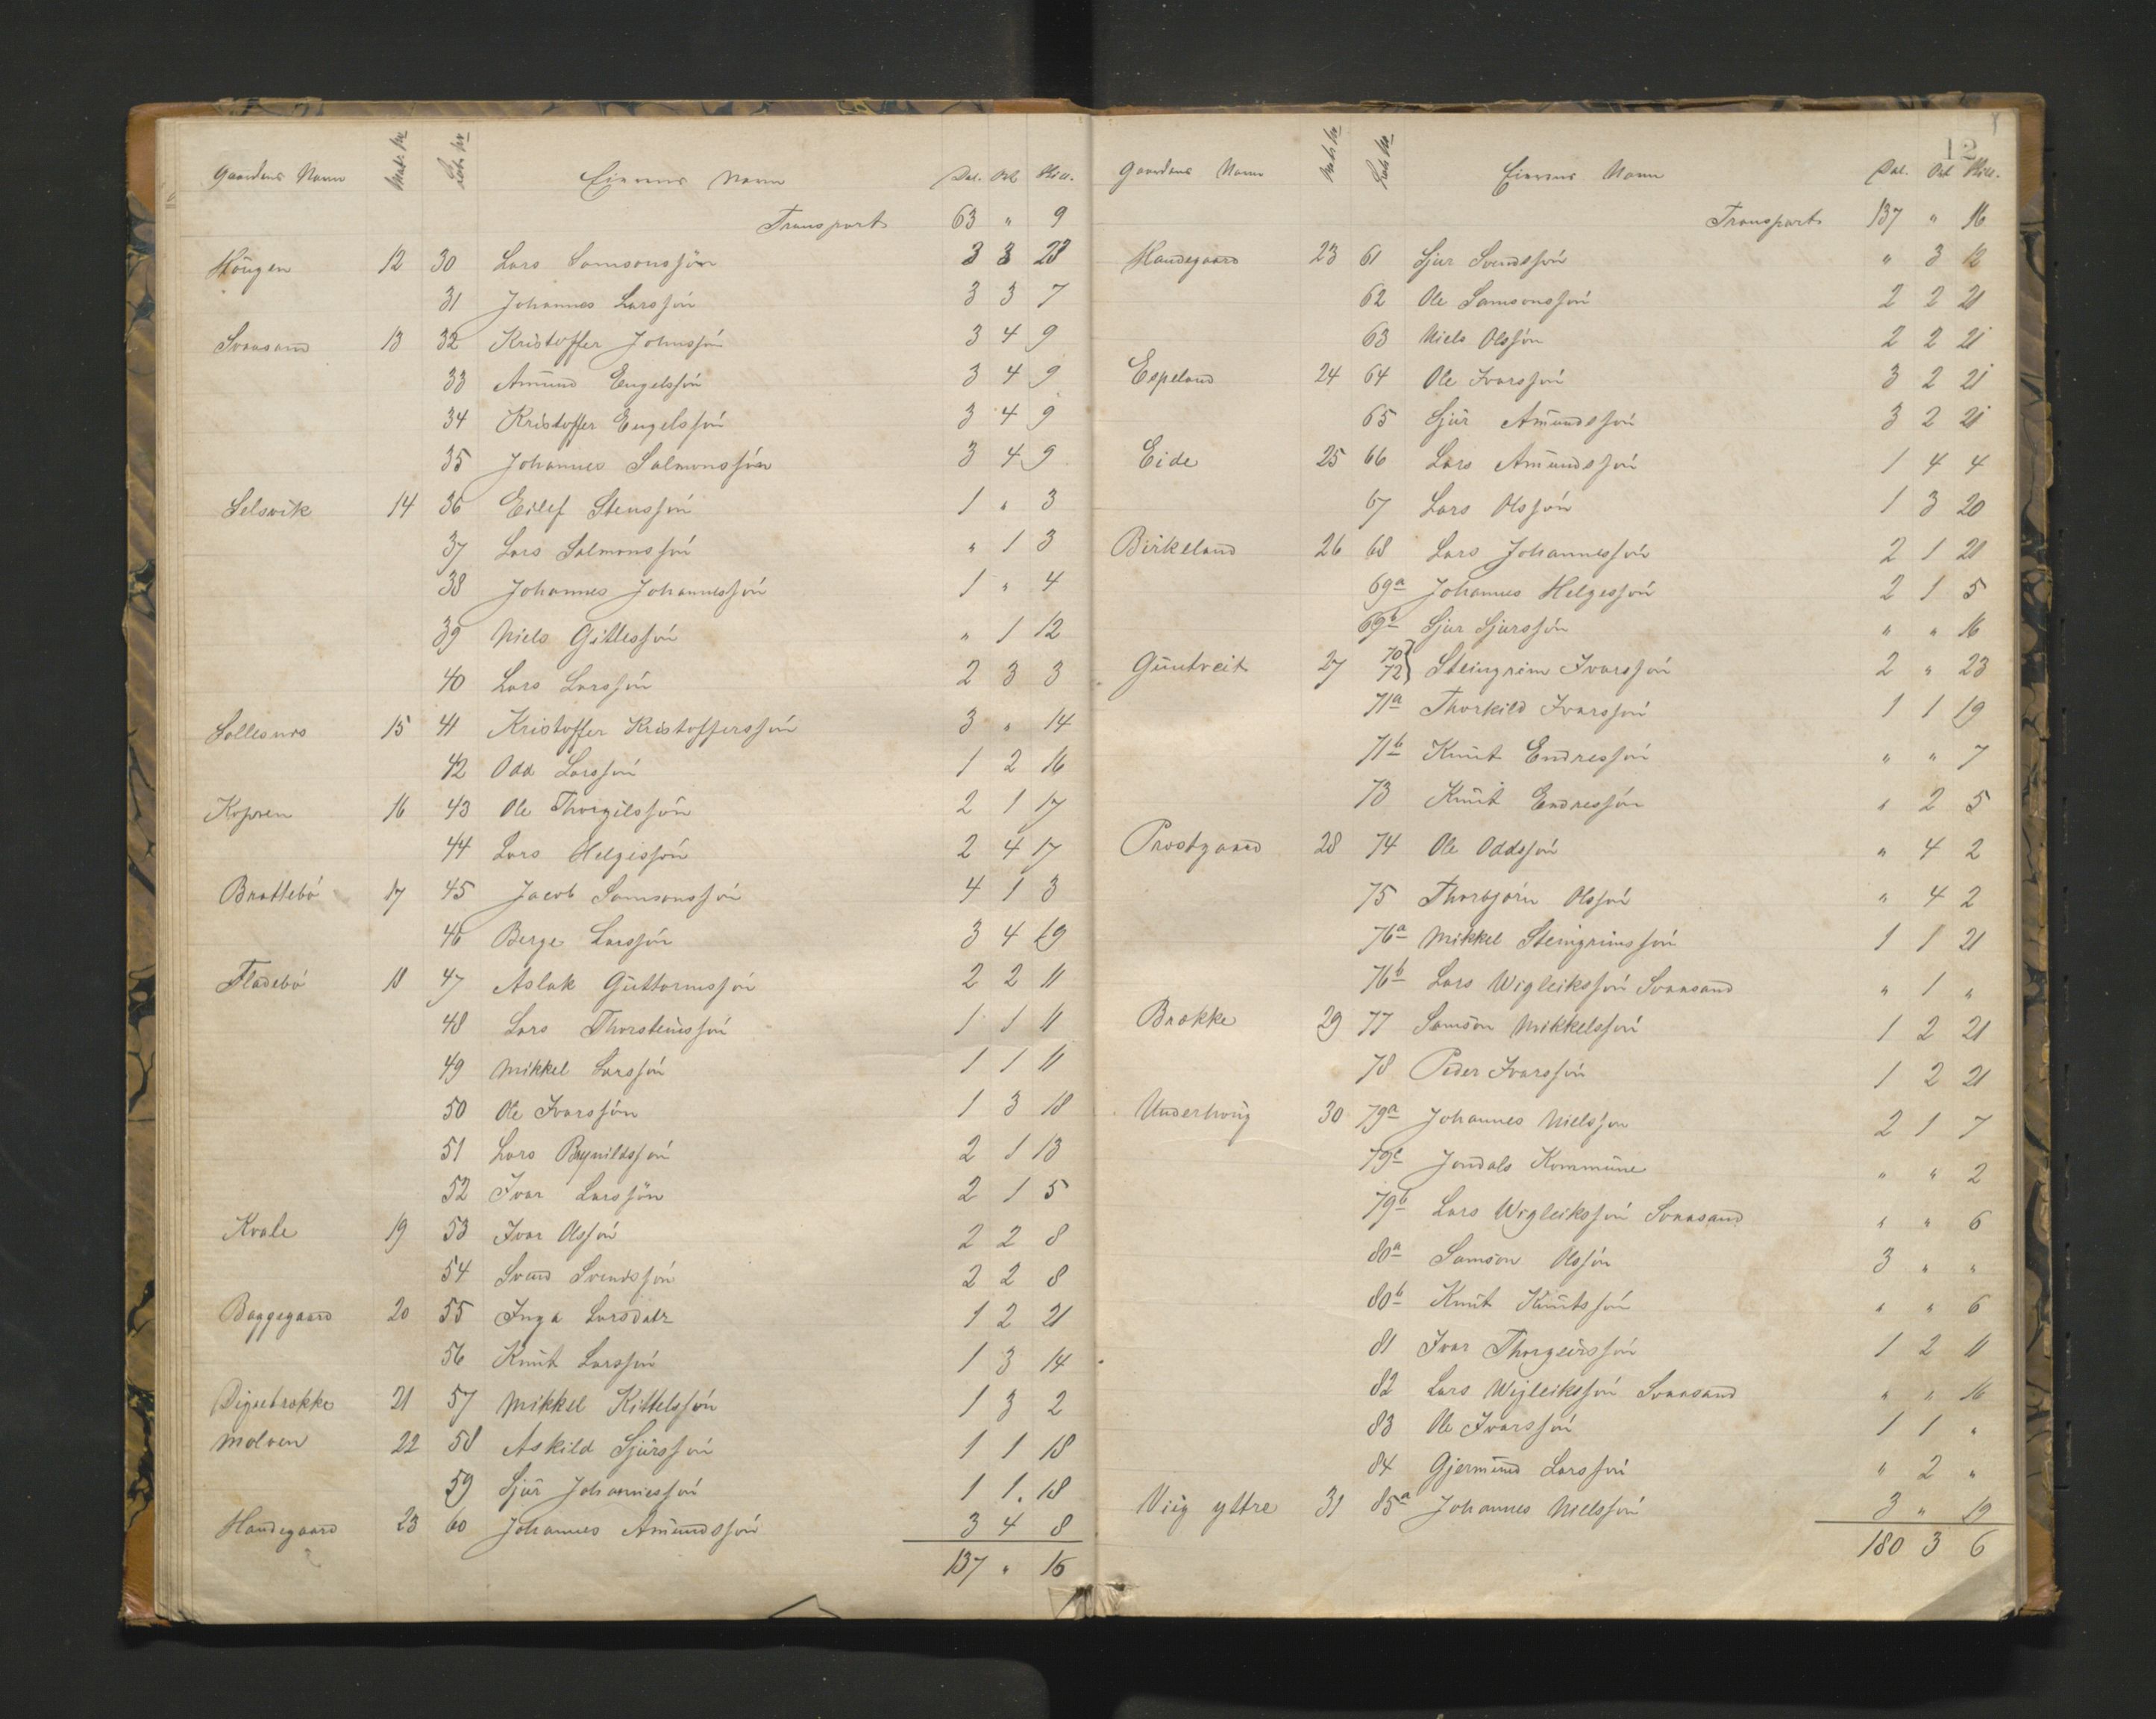 Gaardens Navn Matr. Nr Løb. Nr Eierens Navn Dal. Ort Skill.
Transport 63 " 9
Hougen 12 30 Lars Samsonssøn 3 3 23
31 Johannes Larssøn 3 3 7
Svaasand 13 32 Kristoffer Johnssøn 3 4 9
33 Amund Engelssøn 3 4 9
34 Kristoffer Engelssøn 3 4 9
35 Johannes Salmonssøn 3 4 9
Selsvik 14 36 Eilef Stenssøn 1 " 3
37 Lars Salmonssøn " 1 3
38 Johannes Johannessøn 1 " 4
39 Niels Gitlessøn " 1 12
40 Lars Larssøn 2 3 3
Sollesnes 15 41 Kristoffer Kristofferssøn 3 " 14
42 Odd Larssøn 1 2 16
Kopren 16 43 Ole Thorgilssøn 2 1 17
44 Lars Helgessøn 2 4 17
Brattebø 17 45 Jacob Samsonssøn 4 1 3
46 Berge Larssøn 3 4 19
Fladebø 18 47 Aslak Guttormssøn 2 2 11
48 Lars Thorsteinssøn 1 1 11
49 Mikkel Larssøn 1 1 11
50 Ole Ivarssøn 1 3 18
51 Lars Brynildssøn 2 1 13
52 Ivar Larssøn 2 1 5
Kvale 19 53 Ivar Olssøn 2 2 8
54 Svend Svendssøn 2 2 8
Baggegaard 20 55 Inga Larsdatr 1 2 21
56 Knut Larssøn 1 3 14
Digrebrække 21 57 Mikkel Kittelssøn 1 3 2
Molven 22 58 Askild Sjurssøn 1 1 18
59 Sjur Johannessøn 1 1 18
Handegaard 23 60 Johannes Amundssøn 3 4 8
137 " 16
12
Gaardens Navn Matr. Nr Løb. Nr Eierens Navn Dal. Ort Skill.
Transport 137 " 16
Handegaard 23 61 Sjur Svendssøn " 3 12
62 Ole Samsonssøn 2 2 21
63 Niels Olssøn 2 2 21
Espeland 24 64 Ole Ivarssøn 3 2 21
65 Sjur Amundssøn 3 2 21
Eide 25 66 Lars Amundssøn 1 4 4
67 Lars Olssøn 1 3 20
Birkeland 26 68 Lars Johannessøn 2 1 21
69a Johannes Helgessøn 2 1 5
69b Sjur Sjurssøn " " 16
Guntveit 27 70 72} Steingrim Ivarssøn 2 " 23
71a Thorkild Ivarssøn 1 1 19
71b Knut Endressøn " " 7
73 Knut Endressøn " 2 5
Prostgaard 28 74 Ole Oddssøn " 4 2
75 Thorbjørn Olssøn " 4 2
76a Mikkel Steingrimssøn 1 1 21
76b Lars Wigleikssøn Svaasand " 1 "
Brække 29 77 Samson Mikkelssøn 1 2 21
78 Peder Ivarssøn 1 2 21
Underhoug 30 79a Johannes Nielssøn 2 1 7
79c Jondals Kommune " " 2
79b Lars Wigleikssøn Svaasand " " 6
80a Samson Olssøn 3 " "
80b Knut Knutssøn " " 6
81 Ivar Thorgeirssøn 1 2 11
82 Lars Wigleikssøn Svaasand " " 16
83 Ole Ivarssøn 1 1 "
84 Gjermund Larssøn " 2 "
Viig yttre 31 85a Johannes Nielssøn 3 " 19
180 3 6